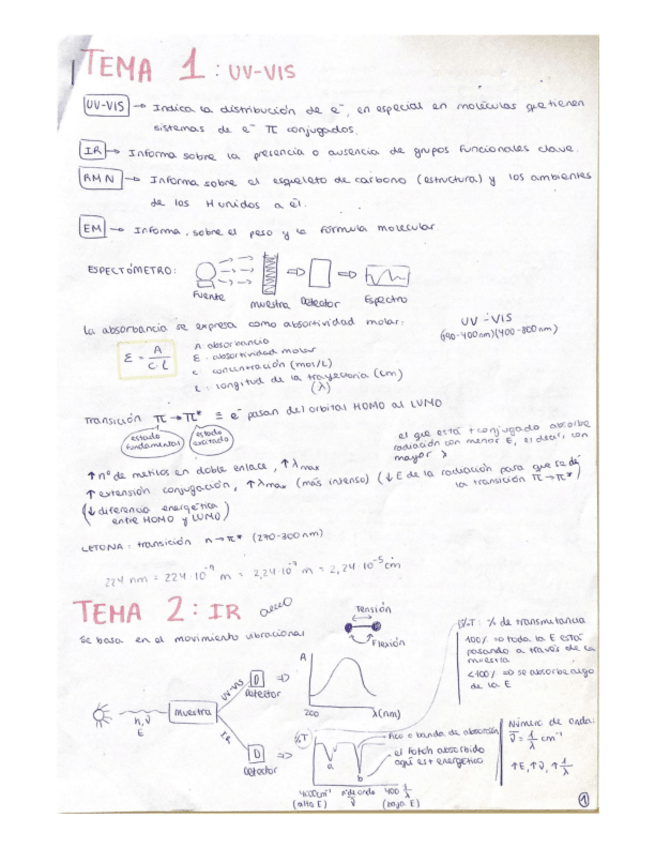 TEMA 1: UV-VIS
UV-VIS → Indica la distribución de e⁻, en especial en moléculas que tienen
sistemas de e⁻ π conjugados.
IR → Informa sobre la presencia o ausencia de grupos funcionales clave.
RMN → Informa sobre el esqueleto de carbono (estructura) y los ambientes
de los H unidos a él.
EM → Informa sobre el peso y la fórmula molecular
ESPECTÓMETRO:
Fuente muestra Detector Espectro
La absorbancia se expresa como absortividad molar:
UV - VIS
(400-800nm)
ε = A / c·l
A: absorbancia
ε: absortividad molar
c: concentración (mol/L)
l: longitud de la trayectoria (cm)
(λ)
Transición π → π* ≡ e⁻ pasan del orbital HOMO al LUMO
estado fundamental
estado excitado
el que está + conjugado absorbe
radiación con menor E, es decir, con
mayor λ
↑ nº de metilos en doble enlace, ↑ λmax
↑ extensión conjugación, ↑ λmax (más intenso) (↓ E de la radiación para que se dé
la transición π → π*)
(↓ diferencia energética
entre HOMO y LUMO)
CETONA: transición n → π* (270-300nm)
224 nm = 224·10⁻⁹ m = 2,24·10⁻⁷ m = 2,24·10⁻⁵ cm
TEMA 2: IR
Se basa en el movimiento vibracional
Tensión
Flexión
%T: % de transmitancia
100% ⇒ toda la E está
pasando a través de la
muestra
<100% ⇒ se absorbe algo
de la E
h,ν
E
muestra
UV-VIS
D
Detector
A
200
λ(nm)
IR
D
Detector
%T
a
b
Pico o banda de absorción
el fotón absorbido
aquí es + energético
4000cm⁻¹ nº de onda 400 1/λ
(alta E) ν̄ (baja E)
Número de onda:
ν̄ = 1/λ cm⁻¹
↑E, ↑ν, ↑1/λ
1